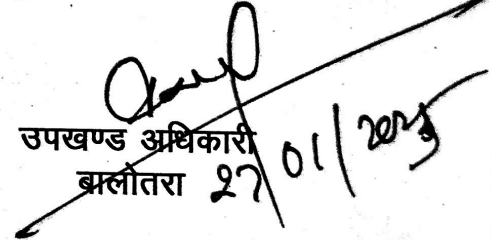 उपखण्ड अधिकारी
बालोतरा 27/01/2025